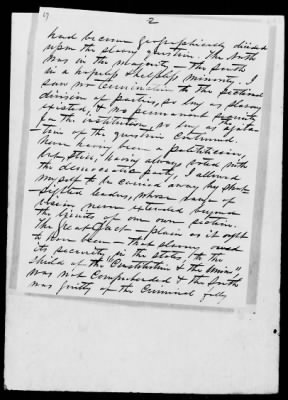 19
2
had become geographically divided
upon the slavery question. The North
was in the majority – the South
in a hopeless & helpless minority. I
saw no termination to the sectional
division of parties, so long as slavery
existed, & no permanent security
for the institution so long as agita-
tion of the question continued.
Never having been a politician,
but still, having always voted with
the democratic party, I allowed
myself to be carried away by short
sighted leaders, whose range of
vision never extended beyond
the limits of our own section.
The great fact – plain as it ought
to have been – that slavery owed
its security in the states, to the
shield of the "Constitution & the Union"
was not comprehended & the South
was guilty of the criminal folly